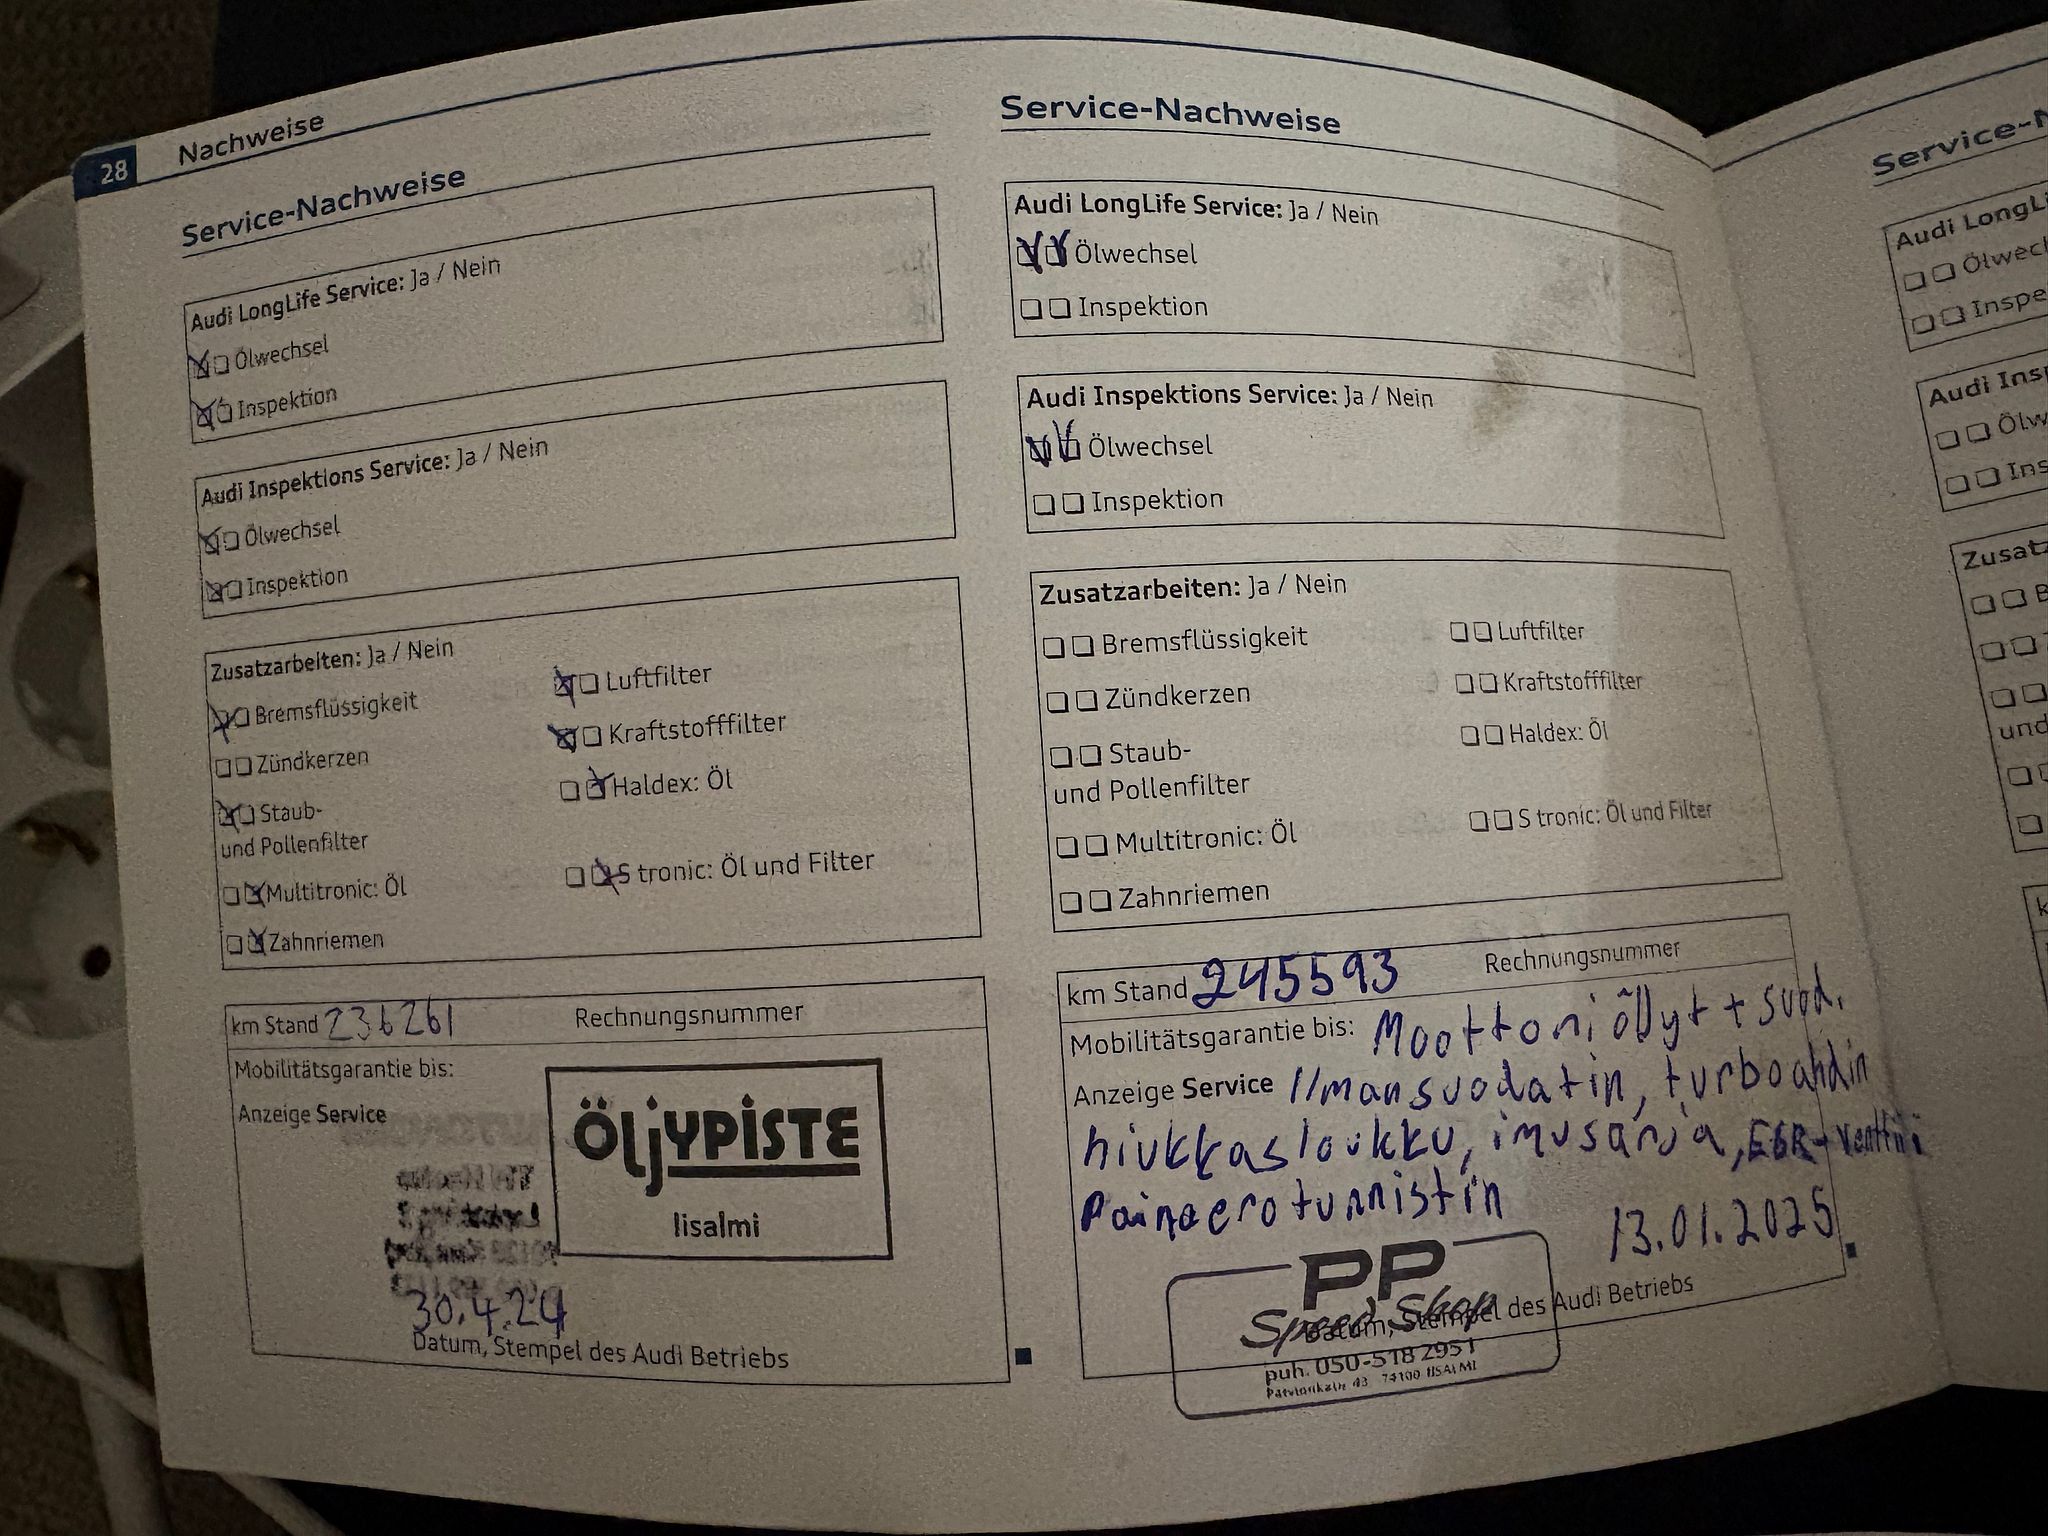 28 Nachweise
Service-Nachweise
Audi LongLife Service: Ja / Nein
Ölwechsel
Inspektion
Audi Inspektions Service: Ja / Nein
Ölwechsel
Inspektion
Zusatzarbeiten: Ja / Nein
Bremsflüssigkeit
Luftfilter
Zündkerzen
Kraftstofffilter
Staub-
und Pollenfilter
Haldex: Öl
Multitronic: Öl
S tronic: Öl und Filter
Zahnriemen
km Stand 236261 Rechnungsnummer
Mobilitätsgarantie bis:
Anzeige Service
ÖLJYPISTE
Iisalmi
30.4.24
Datum, Stempel des Audi Betriebs
Service-Nachweise
Audi LongLife Service: Ja / Nein
Ölwechsel
Inspektion
Audi Inspektions Service: Ja / Nein
Ölwechsel
Inspektion
Zusatzarbeiten: Ja / Nein
Bremsflüssigkeit
Luftfilter
Zündkerzen
Kraftstofffilter
Staub-
und Pollenfilter
Haldex: Öl
Multitronic: Öl
S tronic: Öl und Filter
Zahnriemen
km Stand 245593 Rechnungsnummer
Mobilitätsgarantie bis: Moottoriöljyt + suod.
Anzeige Service Ilmansuodatin, turboahdin
hiukkasloukku, imusarja, EGR-venttiili
Paineerotunnistin
13.01.2025
PP
Speed Shop
Datum, Stempel des Audi Betriebs
puh. 050-518 2951
74100 IISALMI
Service-
Audi
Ölwec
Inspe
Audi Ins
Ölw
Ins
Zusatz
und